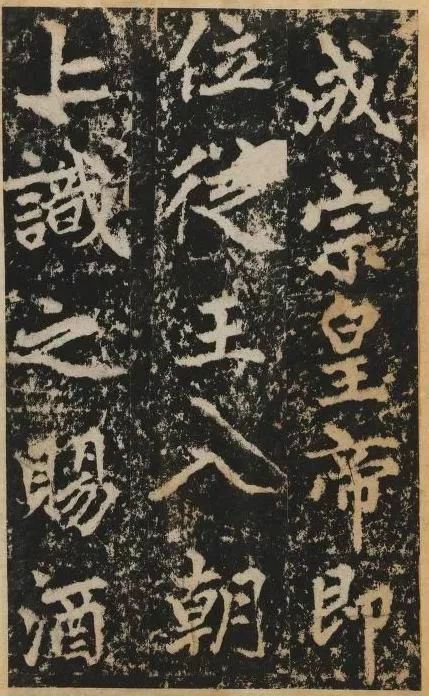 成宗皇帝即
位從王入朝
上識之賜酒